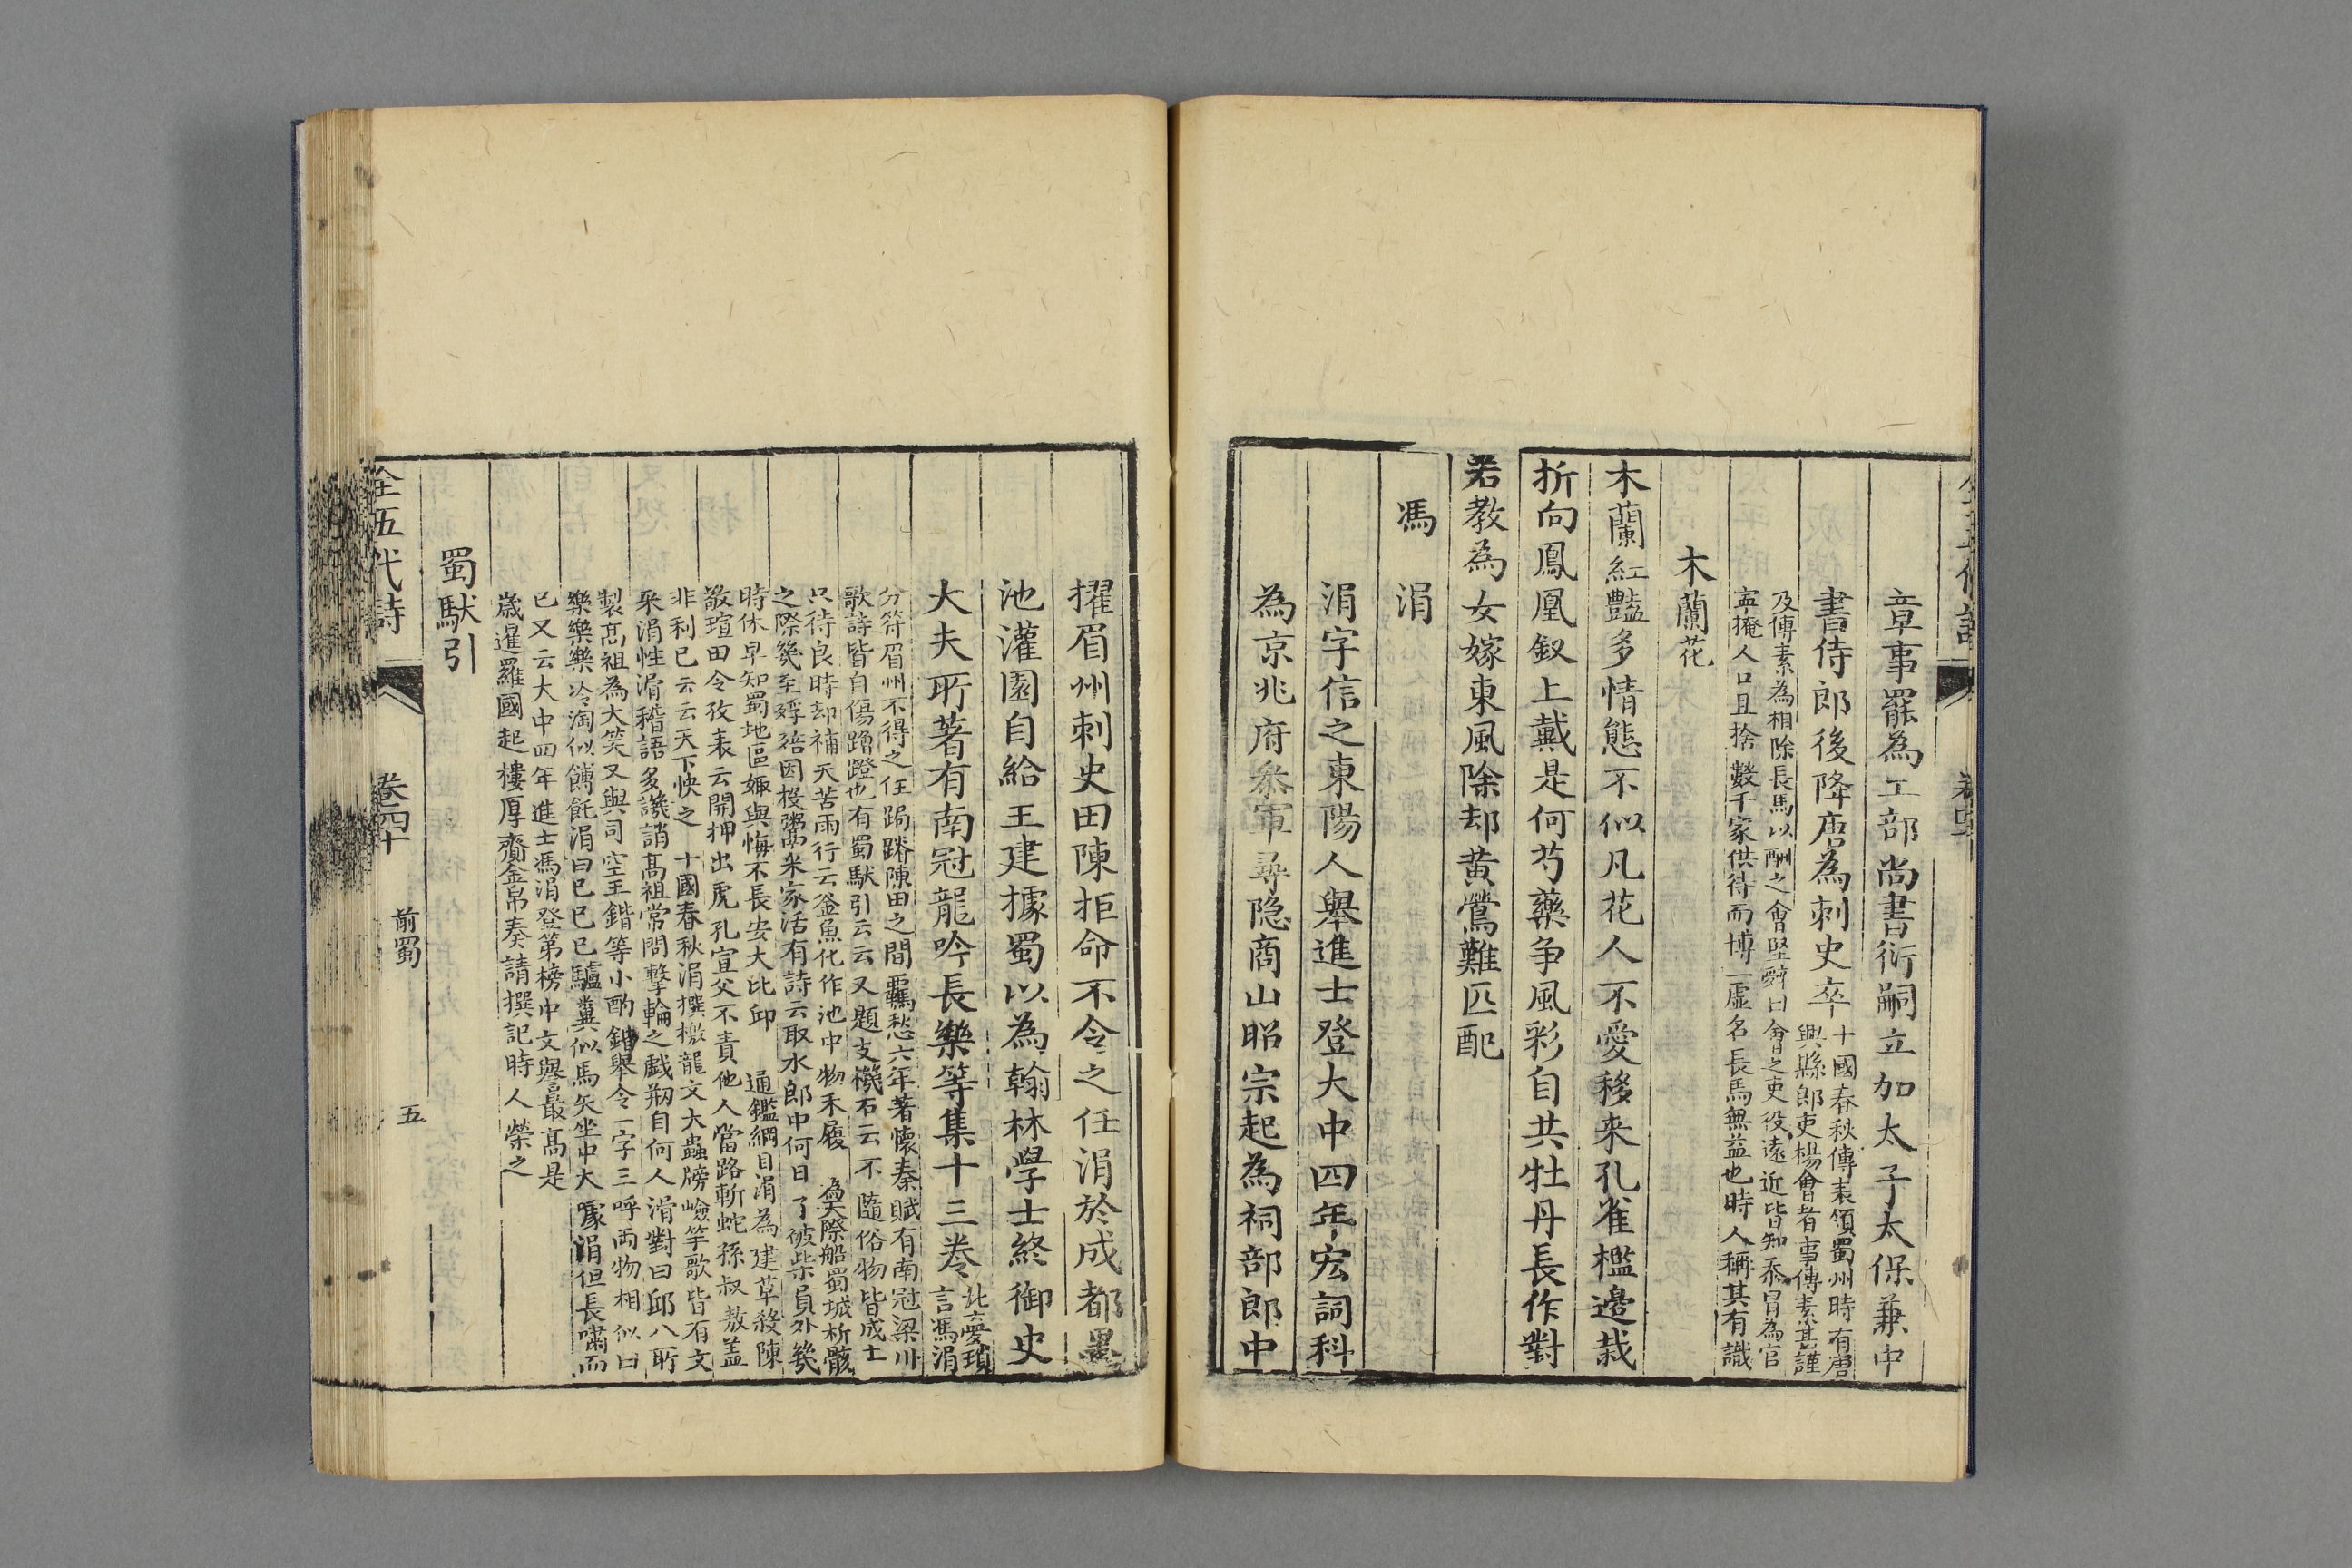 章事罷為工部尚書衍嗣立加太子太保兼中
書侍郎後降唐為刺史卒
十國春秋傳素領蜀州時有唐
興縣郎吏楊會者事傳素甚謹
及傳素為相除長馬以酬之會堅辭曰會之吏役遠近皆知忝冒為官
寧掩人口且捨數千家供待而博一虛名長馬無益也時人稱其有識
木蘭花
木蘭紅豔多情態不似凡花人不愛移来孔雀檻邊栽
折向鳳凰釵上戴是何芍藥争風彩自共牡丹長作對
若教為女嫁東風除却黄鶯難匹配
馮涓
涓字信之東陽人舉進士登大中四年宏詞科
為京兆府叅軍尋隐商山昭宗起為祠部郎中
擢眉州刺史田陳拒命不令之任涓於成都墨
池灌園自給王建據蜀以為翰林學士終御史
大夫所著有南冠龍吟長樂等集十三卷
北夢瑣
言馮涓
分符眉州不得之任跼蹐陳田之間羈愁六年著懷秦賦有南冠梁川
歌詩皆自傷蹭蹬也有蜀馱引云云又題支機石云不隨俗物皆成土
只待良時却補天苦雨行云釜魚化作池中物木履為天際船蜀城析骸
之際幾至殍踣因投粥萬米家活有詩云取水郎中何日了破柴員外幾
時休早知蜀地區娵與悔不長安大比邱 通鑑綱目涓為建草殺陳
敬瑄田令孜表云開柙出虎孔宣父不責他人當路斬蛇孫叔敖盖
非利己云云天下快之 十國春秋涓撰檄龍文大蟲牓嶮竿歌皆有文
采涓性滑稽語多譏誚高祖常問擊輪之戯剏自何人滑對曰邱八所
製高祖為大笑又與司空王鍇等小酌鍇舉令一字三呼両物相似曰
樂樂樂冷淘似餺飥涓曰巳巳巳驢糞似馬矢坐中大噱涓但長嘯而
已又云大中四年進士馮涓登第榜中文譽最高是
歳暹羅國起樓厚賫金帛奏請撰記時人榮之
蜀馱引
全五代詩 卷四十 前蜀 五